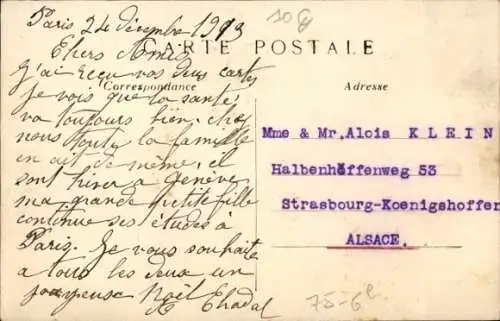 Paris 24 décembre 1913
Chers Amis
CARTE POSTALE
Correspondance
Adresse
j'ai reçu vos deux cartes
je vois que la santé
va toujours bien. chez
nous toute la famille
en ait de même, il
sont hiver a Genève
ma grande petite fille
continue ses études à
Paris. Je vous souhaite
a tous les deux un
joyeuse Noël
Mme & Mr, Alois KLEIN
Halbenhöffenweg 53
Strasbourg-Koenigshoffen
ALSACE.